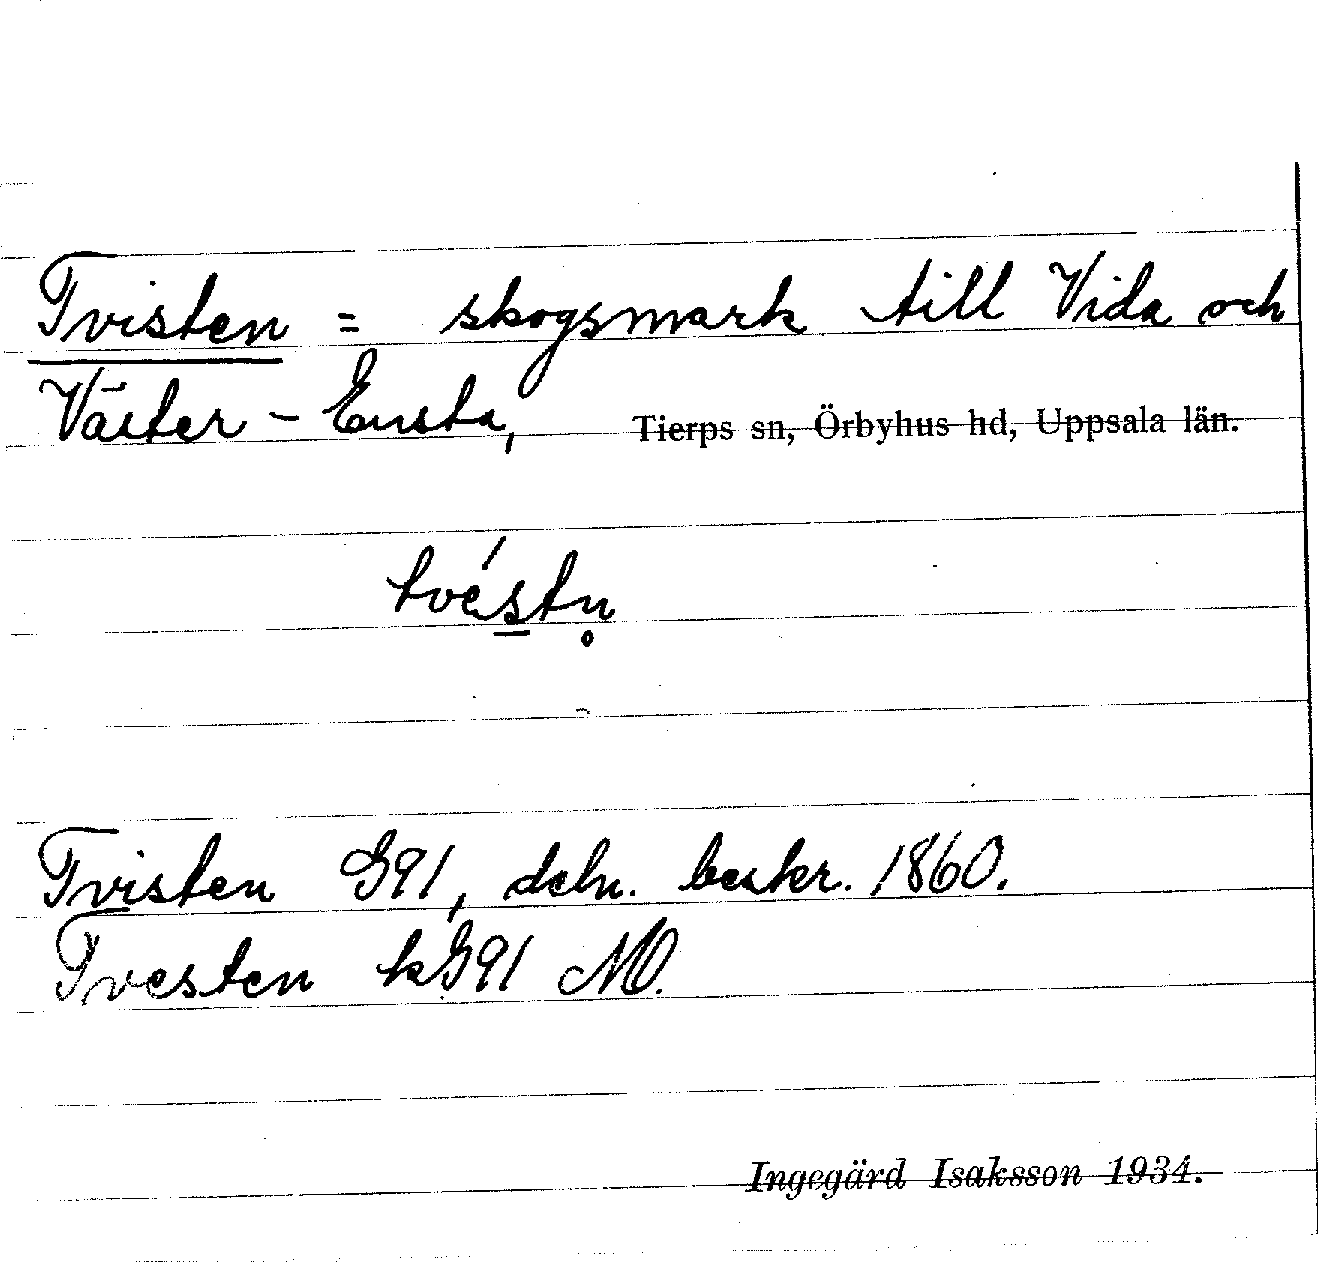 Tvisten = skogsmark till Vida och
Väster - Ensta, Tierps sn, Örbyhus hd, Uppsala län.
tvés̱tn̥
Tvisten G91, deln. beskr. 1860.
Tvesten kG91 MO.
Ingegärd Isaksson 1934.